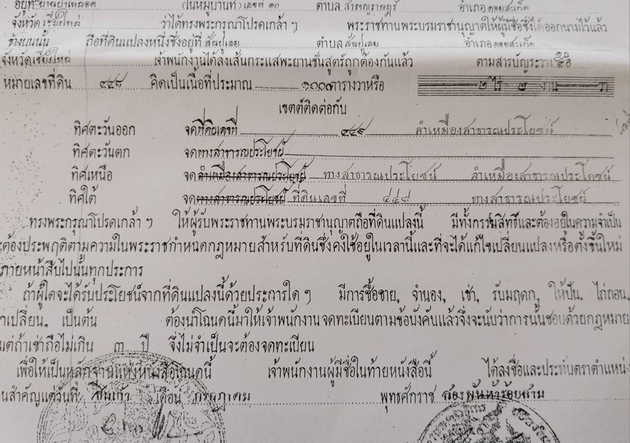 จังหวัดเชียงใหม่ ว่าได้ทรงพระกรุณาโปรดเกล้า ฯ พระราชทานพระบรมราชานุญาตให้ผู้มีชื่อซึ่งได้ออกนามไว้แล้ว
ข้างบนนั้น ถือที่ดินแปลงหนึ่งซึ่งอยู่ที่ ตำบล อำเภอ
จังหวัดเชียงใหม่ เจ้าพนักงานได้ลงเส้นกระแสพะยานชันสูตร์ถูกต้องกันแล้ว ตามสารบัญระวาง
หมายเลขที่ดิน ๔๔๙ คิดเป็นเนื้อที่ประมาณ ๑๐๐๐ ตารางวาหรือ ๒ ไร่ ๒ งาน วา
เขตต์ติดต่อกับ
ทิศตะวันออก จดที่ดินเลขที่ ๔๔๙ ลำเหมืองสาธารณประโยชน์
ทิศตะวันตก จดทางสาธารณประโยชน์
ทิศเหนือ จดลำเหมืองสาธารณประโยชน์ ทางสาธารณประโยชน์ ลำเหมืองสาธารณประโยชน์
ทิศใต้ จดทางสาธารณประโยชน์ ที่ดินเลขที่ ๔๔๘ ทางสาธารณประโยชน์
ทรงพระกรุณาโปรดเกล้า ฯ ให้ผู้รับพระราชทานพระบรมราชานุญาตถือที่ดินแปลงนี้ มีทั้งกรรมสิทธิและต้องอยู่ในความจำเป็น
จะต้องประพฤติตามความในพระราชกำหนดกฎหมายสำหรับที่ดินซึ่งคงใช้อยู่ในเวลานี้และที่จะได้แก้ไขเปลี่ยนแปลงหรือตั้งขึ้นใหม่
ภายหน้าสืบไปนั้นทุกประการ
ถ้าผู้ใดจะได้รับประโยชน์จากที่ดินแปลงนี้ด้วยประการใด ๆ มีการซื้อขาย, จำนอง, เช่า, รับมฤดก, ให้ปัน, ไถ่ถอน,
แลกเปลี่ยน, เป็นต้น ต้องนำโฉนดนี้มาให้เจ้าพนักงานจดทะเบียนตามข้อบังคับแล้วจึ่งจะนับว่าการนั้นชอบด้วยกฎหมาย
แต่ถ้าเช่าถือไม่เกิน ๓ ปี จึ่งไม่จำเป็นจะต้องจดทะเบียน
เพื่อให้เป็นหลักฐานแห่งหนังสือโฉนดนี้ เจ้าพนักงานผู้มีชื่อในท้ายหนังสือนี้ ได้ลงชื่อและประทับตราตำแหน่ง
เป็นสำคัญแต่วันที่ เดือน กรกฎาคม พุทธศักราช สองพันห้าร้อยสาม